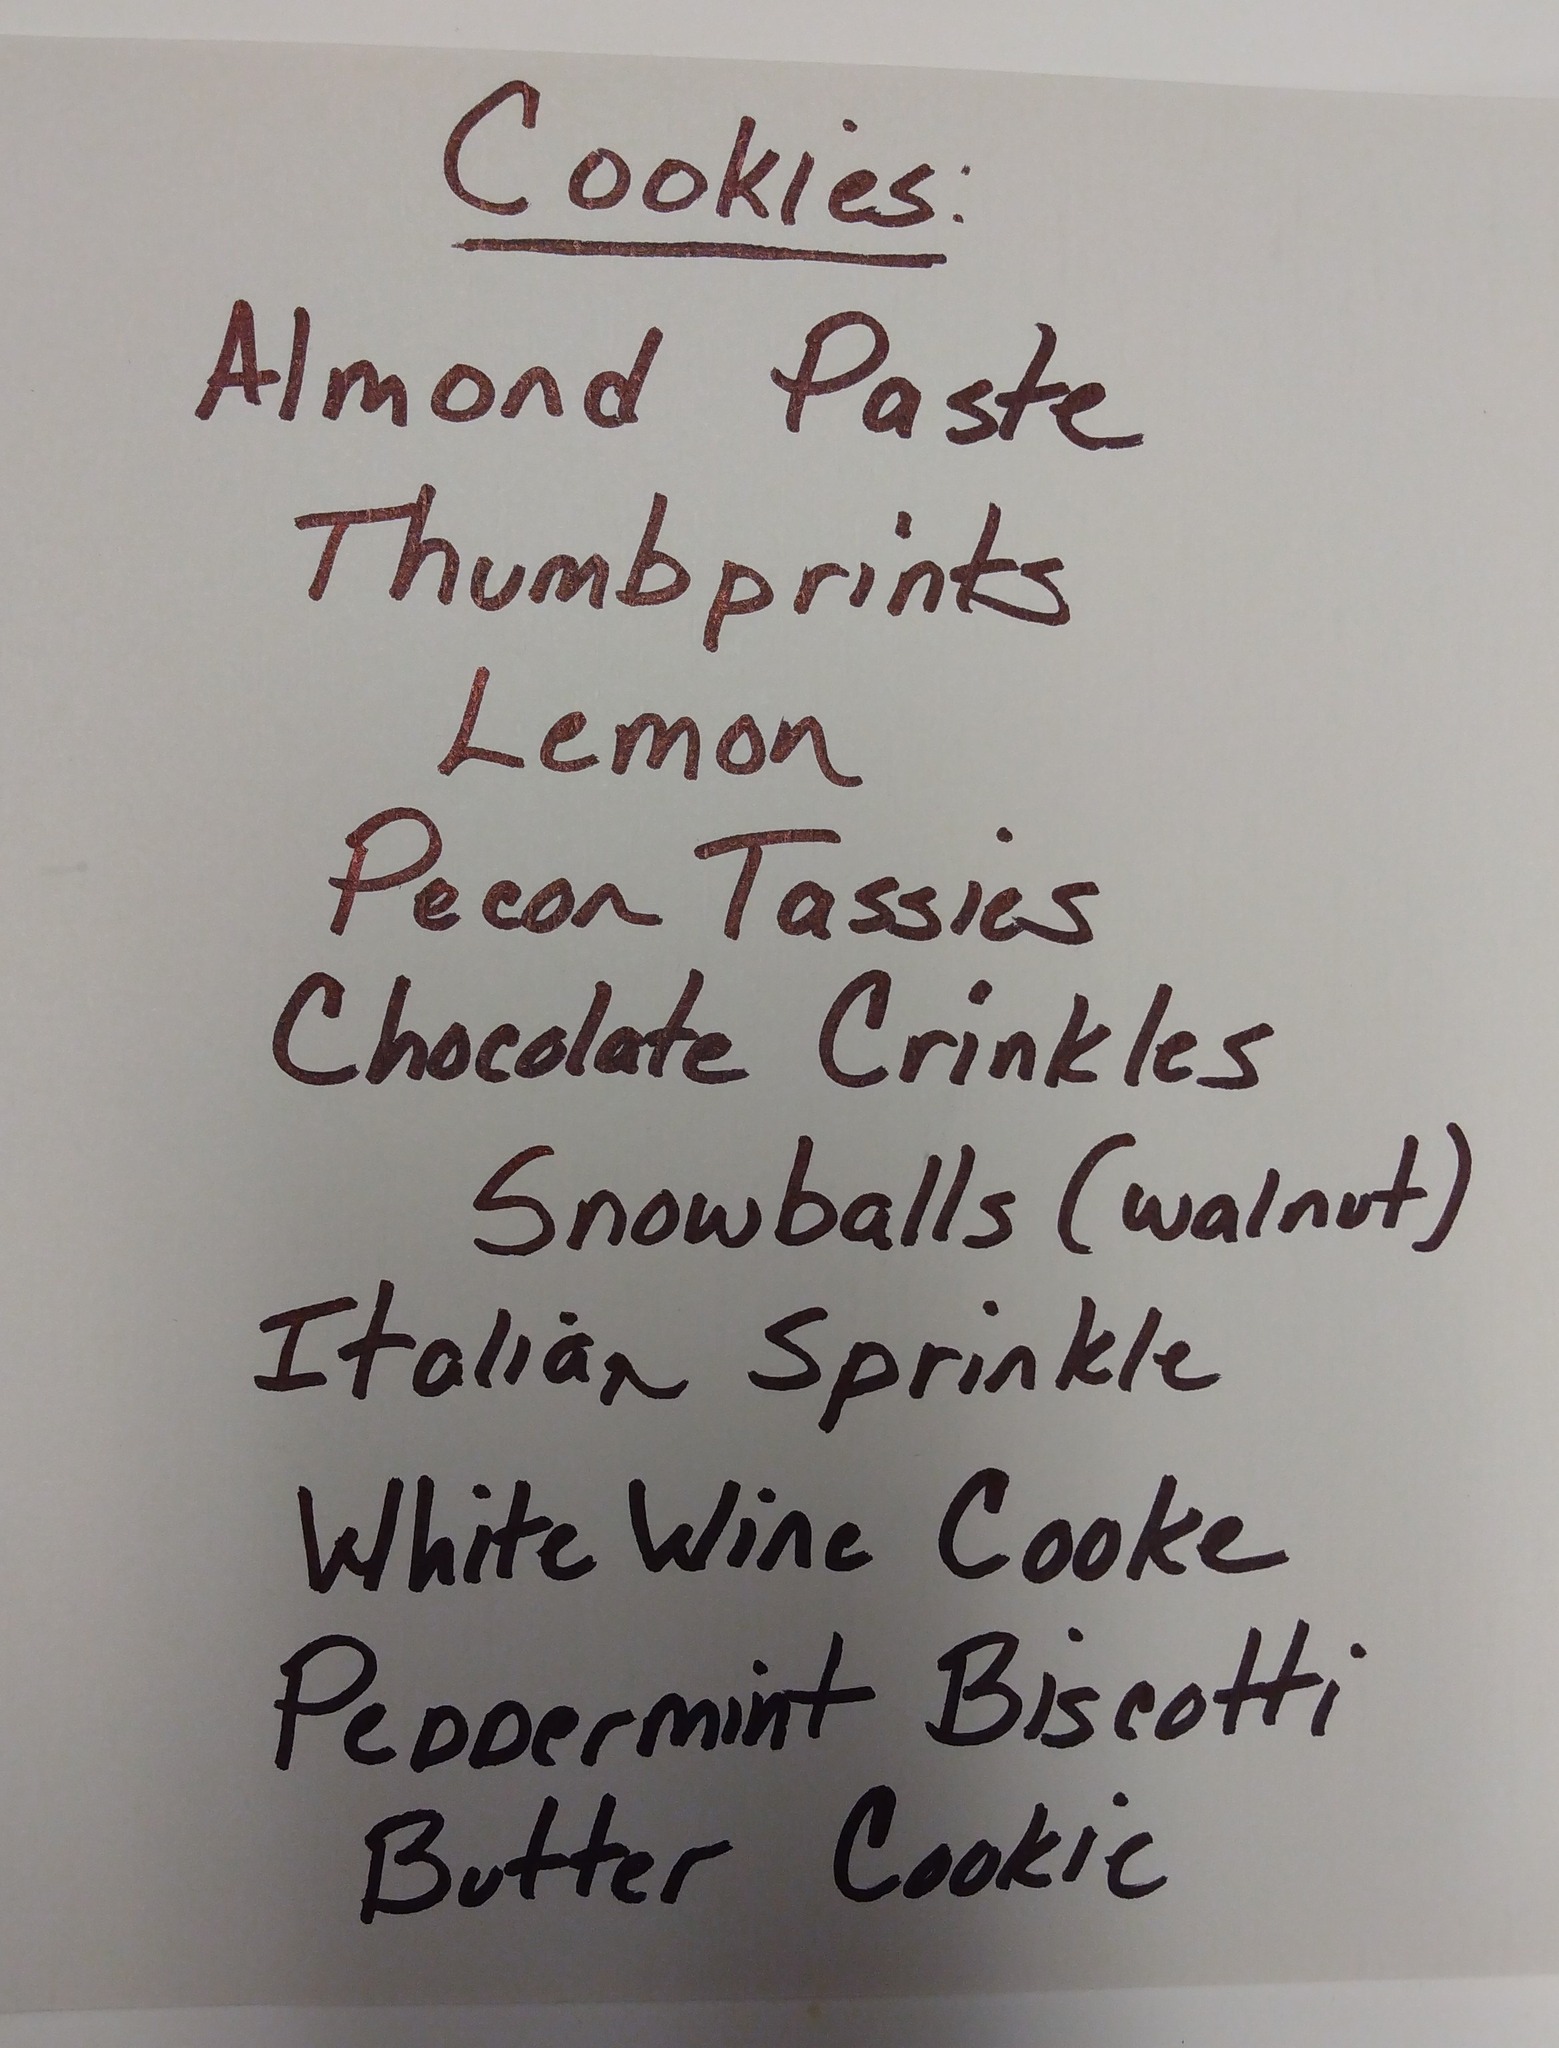 Cookies:
Almond Paste
Thumbprints
Lemon
Pecan Tassies
Chocolate Crinkles
Snowballs (walnut)
Italian Sprinkle
White Wine Cooke
Peppermint Biscotti
Butter Cookie